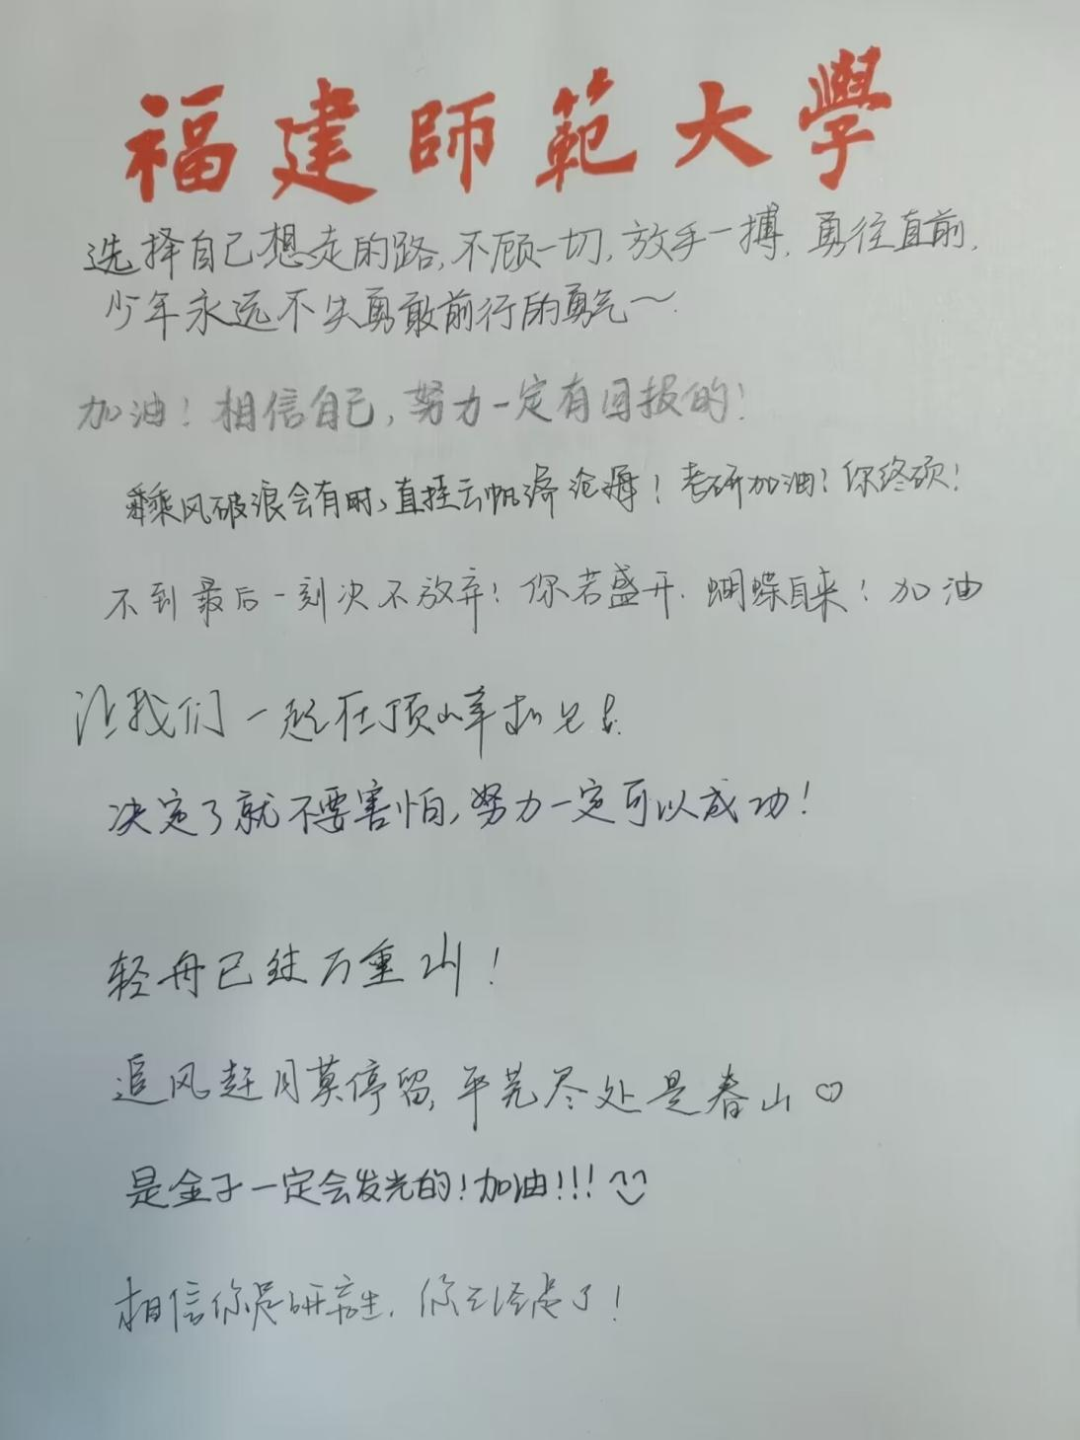 福建師範大學
选择自己想走的路,不顾一切,放手一搏,勇往直前,
少年永远不失勇敢前行的勇气~
加油!相信自己,努力一定有回报的!
乘风破浪会有时,直挂云帆济沧海!考研加油!你终硕!
不到最后一刻决不放弃!你若盛开,蝴蝶自来!加油
让我们一起在顶峰相见
决定了就不要害怕,努力一定可以成功!
轻舟已过万重山!
追风赶月莫停留,平芜尽处是春山♡
是金子一定会发光的!加油!!!
相信你是研究生,你已经是了!